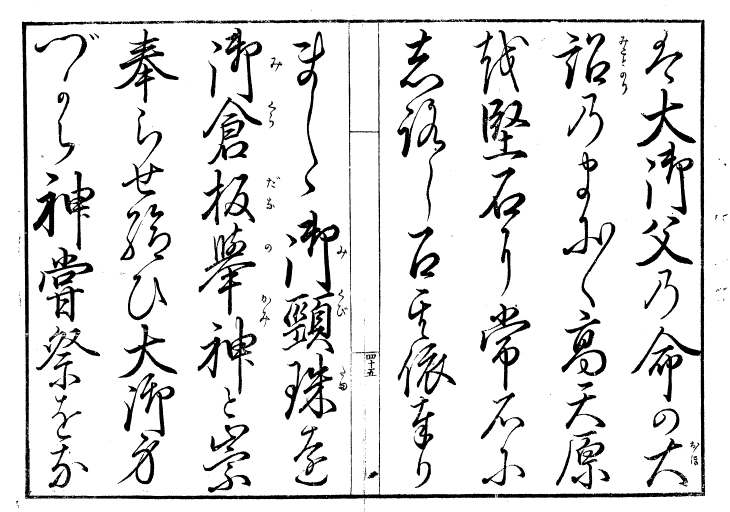 は大御父乃命の大
詔乃まに〱高天原
を堅石に常石に
志路し召 依奉り
ましゝ御頸珠を
御倉板擧神と崇
奉らせ給ひ大御身
づから神嘗祭をな
四十五